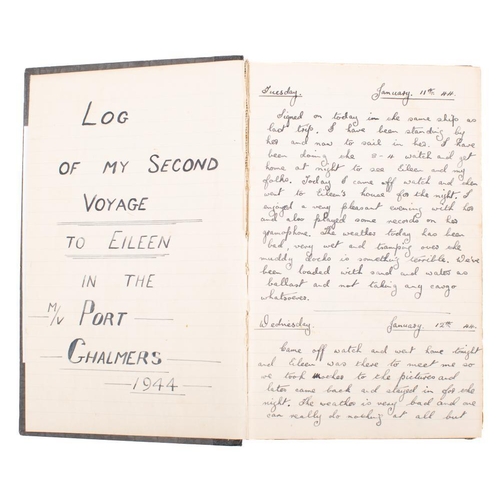 LOG
OF MY SECOND
VOYAGE
TO EILEEN
IN THE
M/V PORT
CHALMERS
1944
Tuesday. January. 11th 44.
Signed on today in the same ship as
last trip. I have been standing by
her and now to sail in her. I have
been doing the 8-4 watch and get
home at night to see Eileen and my
folks. Today I came off watch and then
went to Eileen's house for the night. I
enjoyed a very pleasant evening with her
and also played some records on her
gramophone. The weather today has been
bad, very wet and tramping over the
muddy docks is something terrible. We've
been loaded with sand and water as
ballast and not taking any cargo
whatsoever.
Wednesday. January. 12th 44.
Came off watch and went home tonight
and Eileen was there to meet me so
we took mother to the pictures and
later came back and stayed in for the
night. The weather is very bad and one
can really do nothing at all but